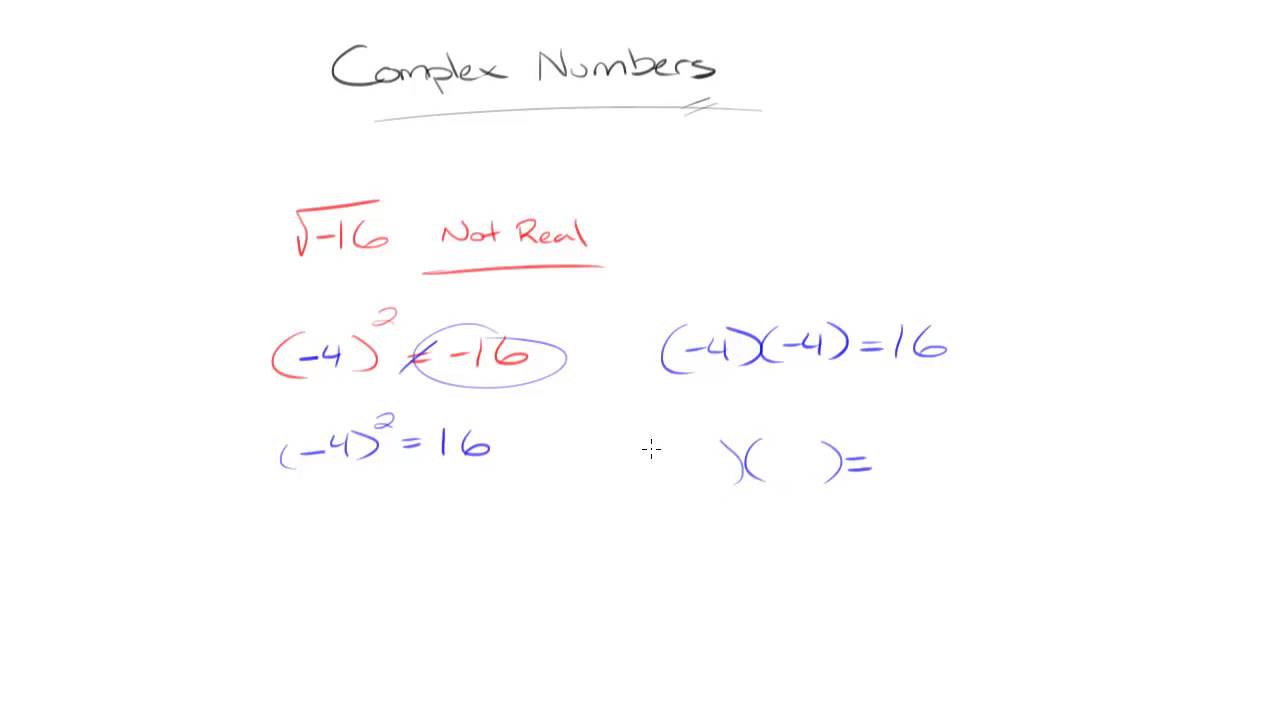 Complex Numbers
√-16 Not Real
(-4)² ≠ -16 (-4)(-4) = 16
(-4)² = 16 )( ) =